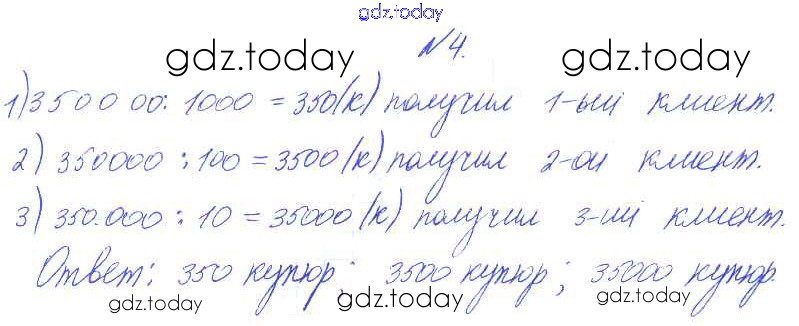 gdz.today
gdz.today gdz.today
№4.
1) 350000 : 1000 = 350 (к) получил 1-ый клиент.
2) 350000 : 100 = 3500 (к) получил 2-ой клиент.
3) 350.000 : 10 = 35000 (к) получил 3-ий клиент.
Ответ: 350 купюр; 3500 купюр; 35000 купюр.
gdz.today gdz.today gdz.today